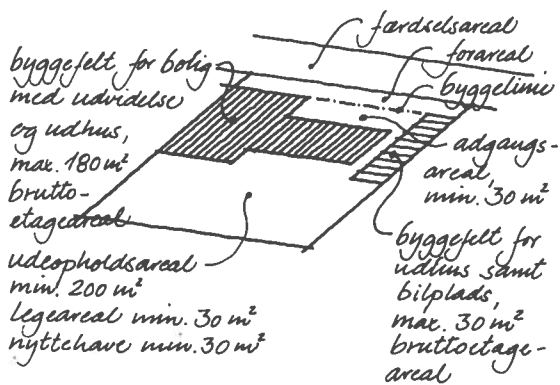 færdselsareal
forareal
byggelinie
byggefelt for bolig
med udvidelse
og udhus,
max. 180 m²
brutto-
etageareal
adgangs-
areal,
min. 30 m²
udeopholdsareal
min. 200 m²
legeareal min. 30 m²
nyttehave min. 30 m²
byggefelt for
udhus samt
bilplads,
max. 30 m²
bruttoetage-
areal